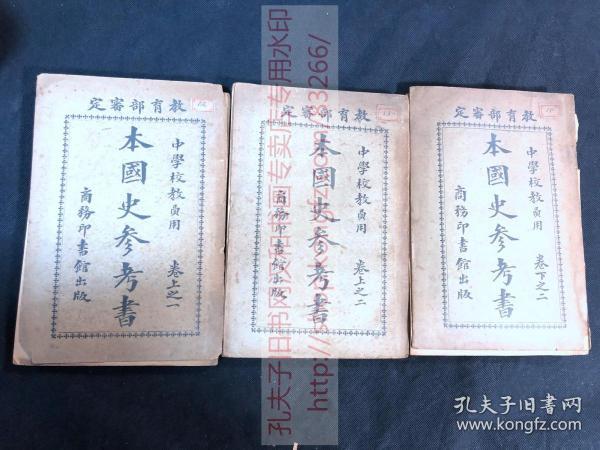 教育部審定
中學校教員用
本國史參考書
卷上之一
商務印書館出版
教育部審定
中學校教員用
本國史參考書
卷上之二
商務印書館出版
教育部審定
中學校教員用
本國史參考書
卷下之二
商務印書館出版
孔夫子旧书网
www.kongfz.com